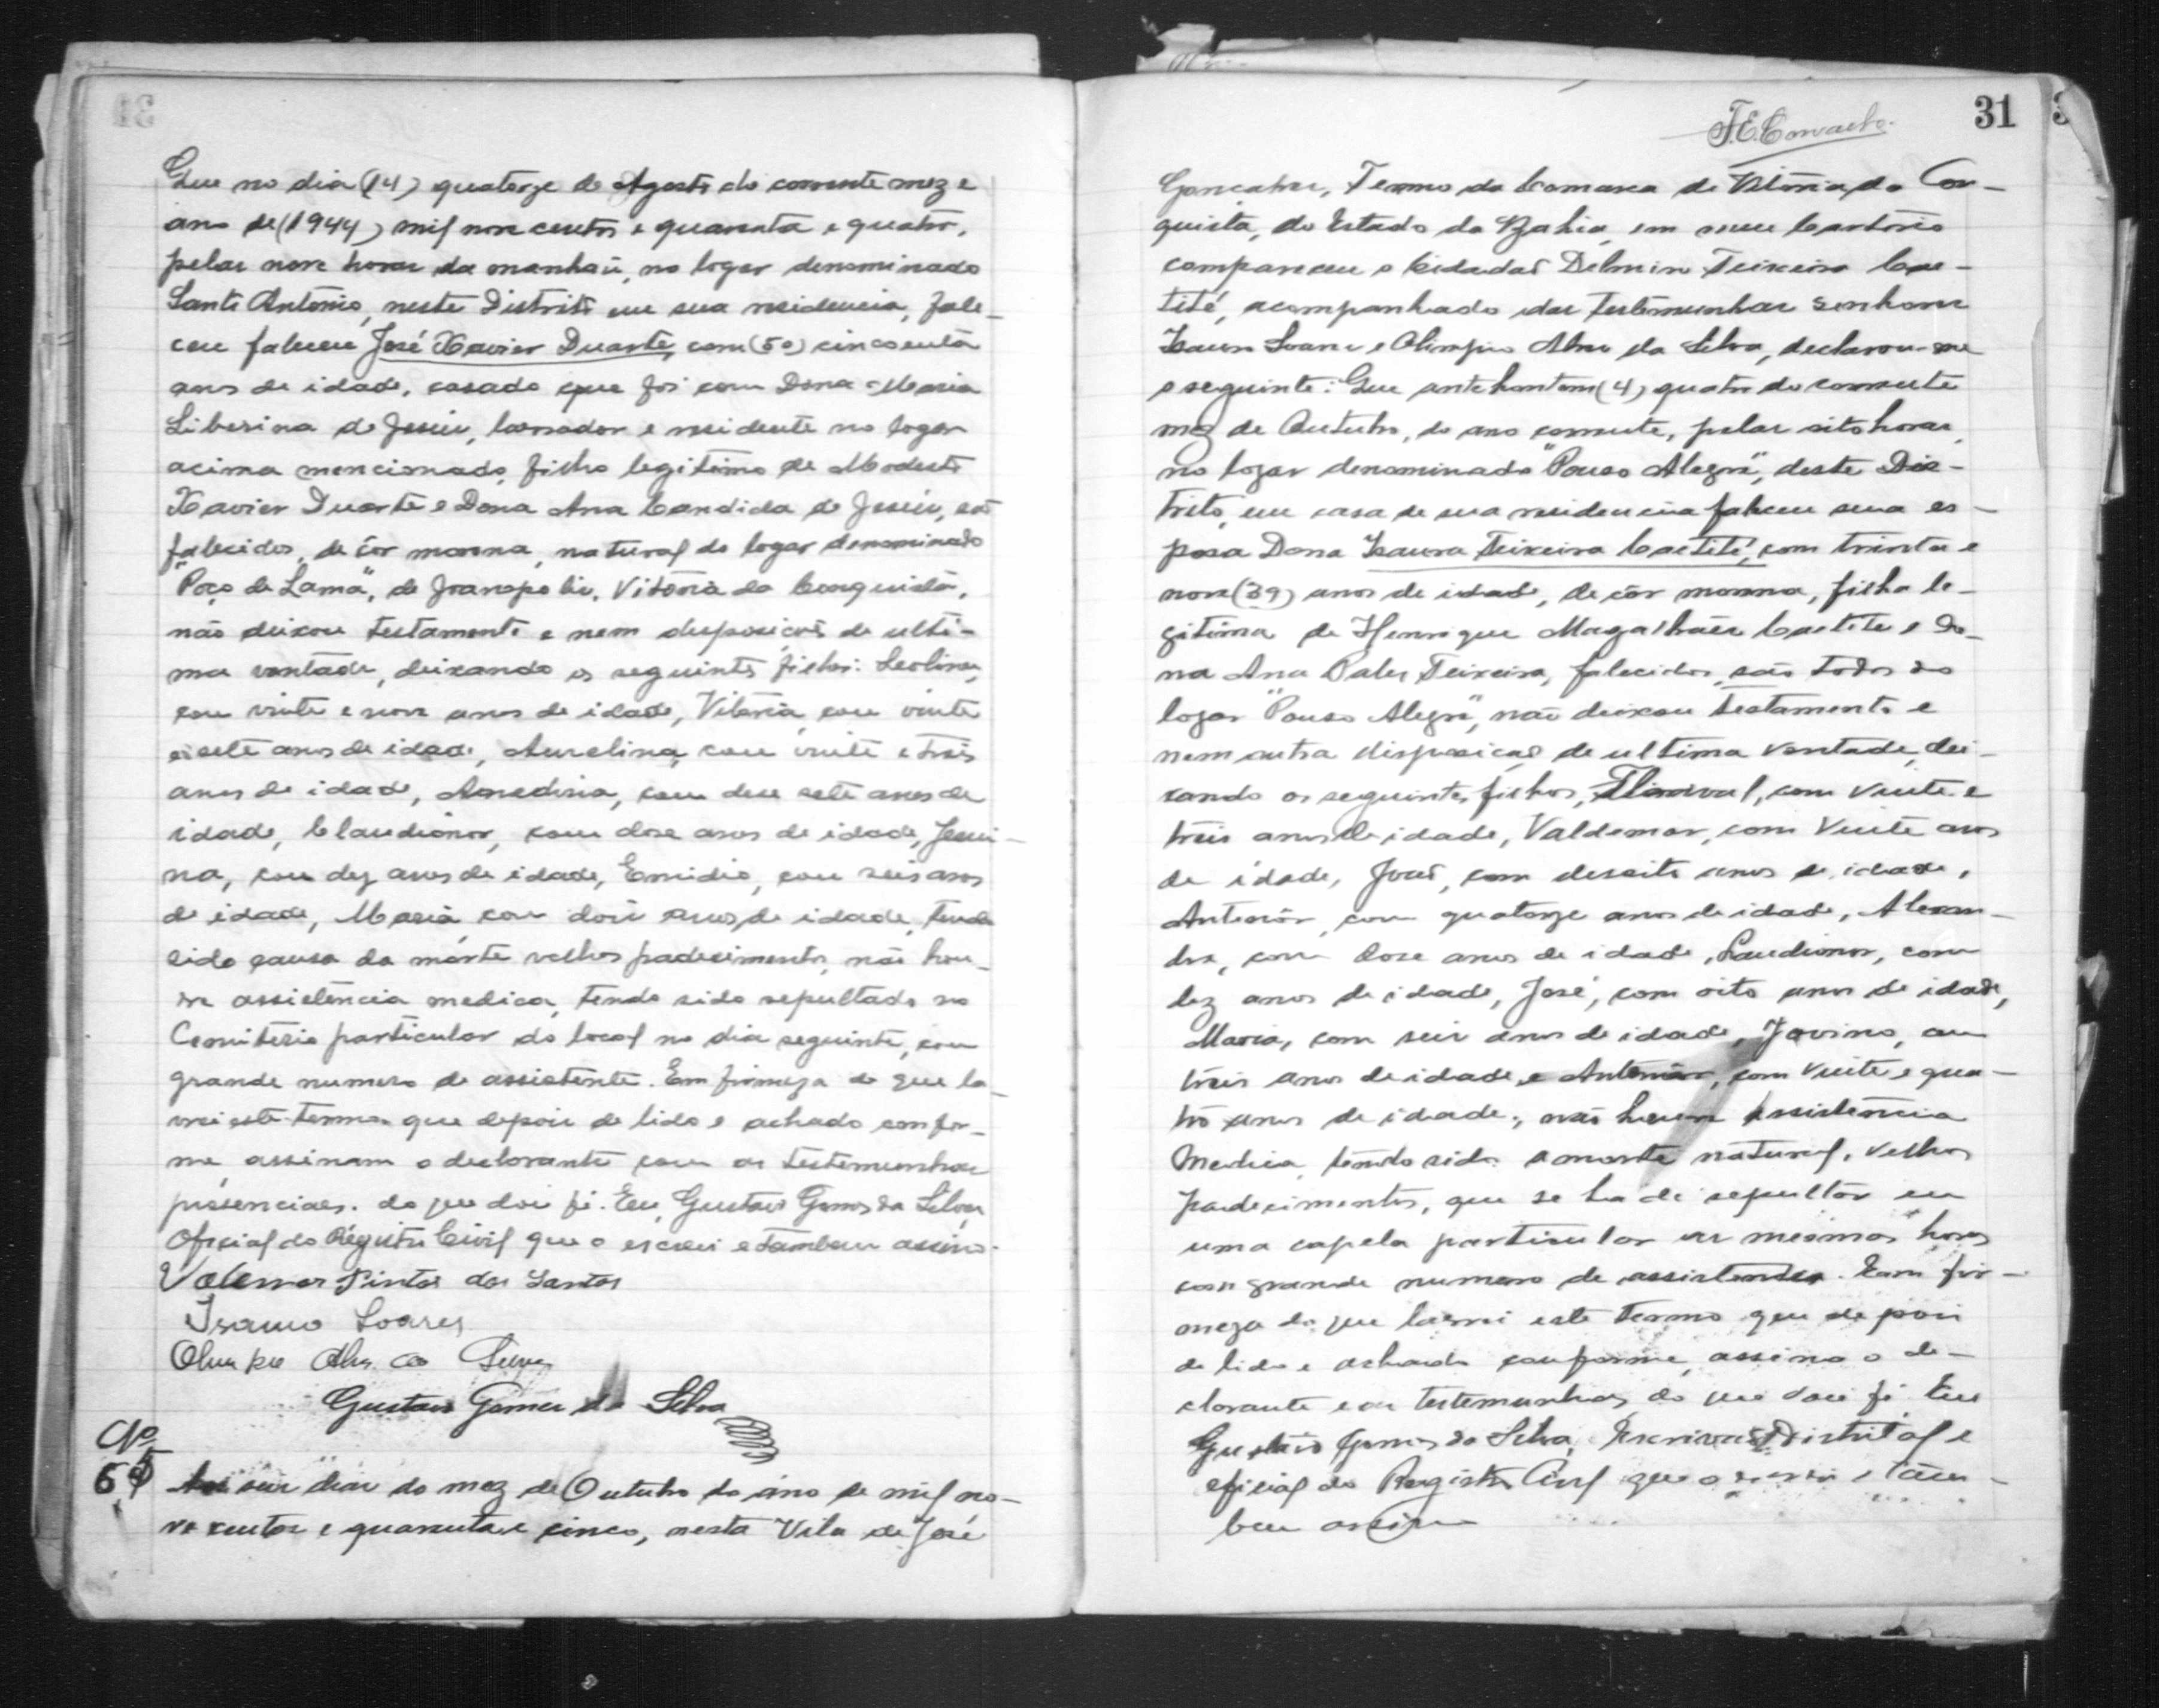 Que no dia (14) quatorze de Agosto do corrente mez e
ano de (1944) mil nove centos e quarenta e quatro,
pelas nove horas da manhaũ, no logar denominado
Santo Antonio, neste Distrito em sua residencia, fale-
ceu faleceu José Xavier Duarte, com (50) cincoenta
anos de idade, casado que foi com Dona Maria
Liberina de Jesus, lavrador e residente no logar
acima mencionado, filho legitimo de Modesto
Xavier Duarte e Dona Ana Candida de Jesus, são
falecidos, de côr morena, natural do logar denominado
"Poço de Lama", de Joanopolis, Vitória da Conquista,
não deixou testamento e nem disposições de ulti-
ma vontade, deixando os seguintes filhos: Leolina,
com vinte e nove anos de idade, Vitória, com vinte
e sete anos de idade, Aurelina, com vinte e três
anos de idade, Amedina, com dese sete anos de
idade, Claudionor, com dose anos de idade, Jesui-
na, com dez anos de idade, Emidio, com seis anos
de idade, Maria com dois anos de idade, tendo
sido causa da morte velhos padecimentos, não hou-
ve assistencia medica, tendo sido sepultado no
Cemiterio particular do local no dia seguinte, com
grande numero de assistente. Em firmeza do que la-
vrei este termo que depois de lido e achado confor-
me, assinam o declarante com as testemunhas
presenciaes. do que dou fé. Eu, Gustavo Gomes da Silva,
Oficial do Registro Civil que o escrevi e tambem assino.
Valemar Pintos dos Santos
Isauro Soares
Olimpio Alves da Silva
Gustavo Gomes da Silva
Nº
6
Aos seis dias do mez de Outubro do ano de mil no-
ve centos e quarenta e cinco, nesta Vila de José
31
Gonçalves, Termo da Comarca de Vitória da Con-
quista, do Estado da Bahia, em meu Cartório
compareceu o Cidadão Delmiro Teixeira Cae-
tité, acompanhado das testemunhas senhores
Isauro Soares e Olimpio Alves da Silva, declarou-me
o seguinte: Que antehontem (4) quatro do corrente
mez de Outubro, do ano corrente, pelas oito horas,
no logar denominado "Pouso Alegre", deste Dis-
trito, em casa de sua residencia faleceu sua es-
posa Dona Isaura Teixeira Caetité, com trinta e
nove (39) anos de idade, de côr morena, filha le-
gitima de Henrique Magalhães Caetité e Do-
na Ana Teixeira, falecidos, são todos do
logar "Pouso Alegre", não deixou testamento e
nem outra disposição de ultima vontade, dei-
xando os seguintes filhos, com vinte e
três anos de idade, Valdemar, com vinte anos
de idade, João, com desoito anos de idade,
Antenôr, com quatorze anos de idade, Alexan-
dre, com dose anos de idade, Laudionor, com
dez anos de idade, José, com oito anos de idade,
Maria, com seis anos de idade, Jovino, com
três anos de idade, e Antenôr, com vinte e qua-
tro anos de idade; não houve assistencia
Medica, tendo sido a morte natural, velhos
padecimentos, que se ha de sepultar em
uma capela particular as mesmas horas
com grande numero de assistentes. Eem fir-
meza do que lavrei este termo que depois
de lido e achado conforme, assina o de-
clarante e as testemunhas, do que dou fé. Eeu
Gustavo Gomes da Silva, Escrivão Distrital e
oficial do Registro Civil que o escrevi e tam-
bem assino